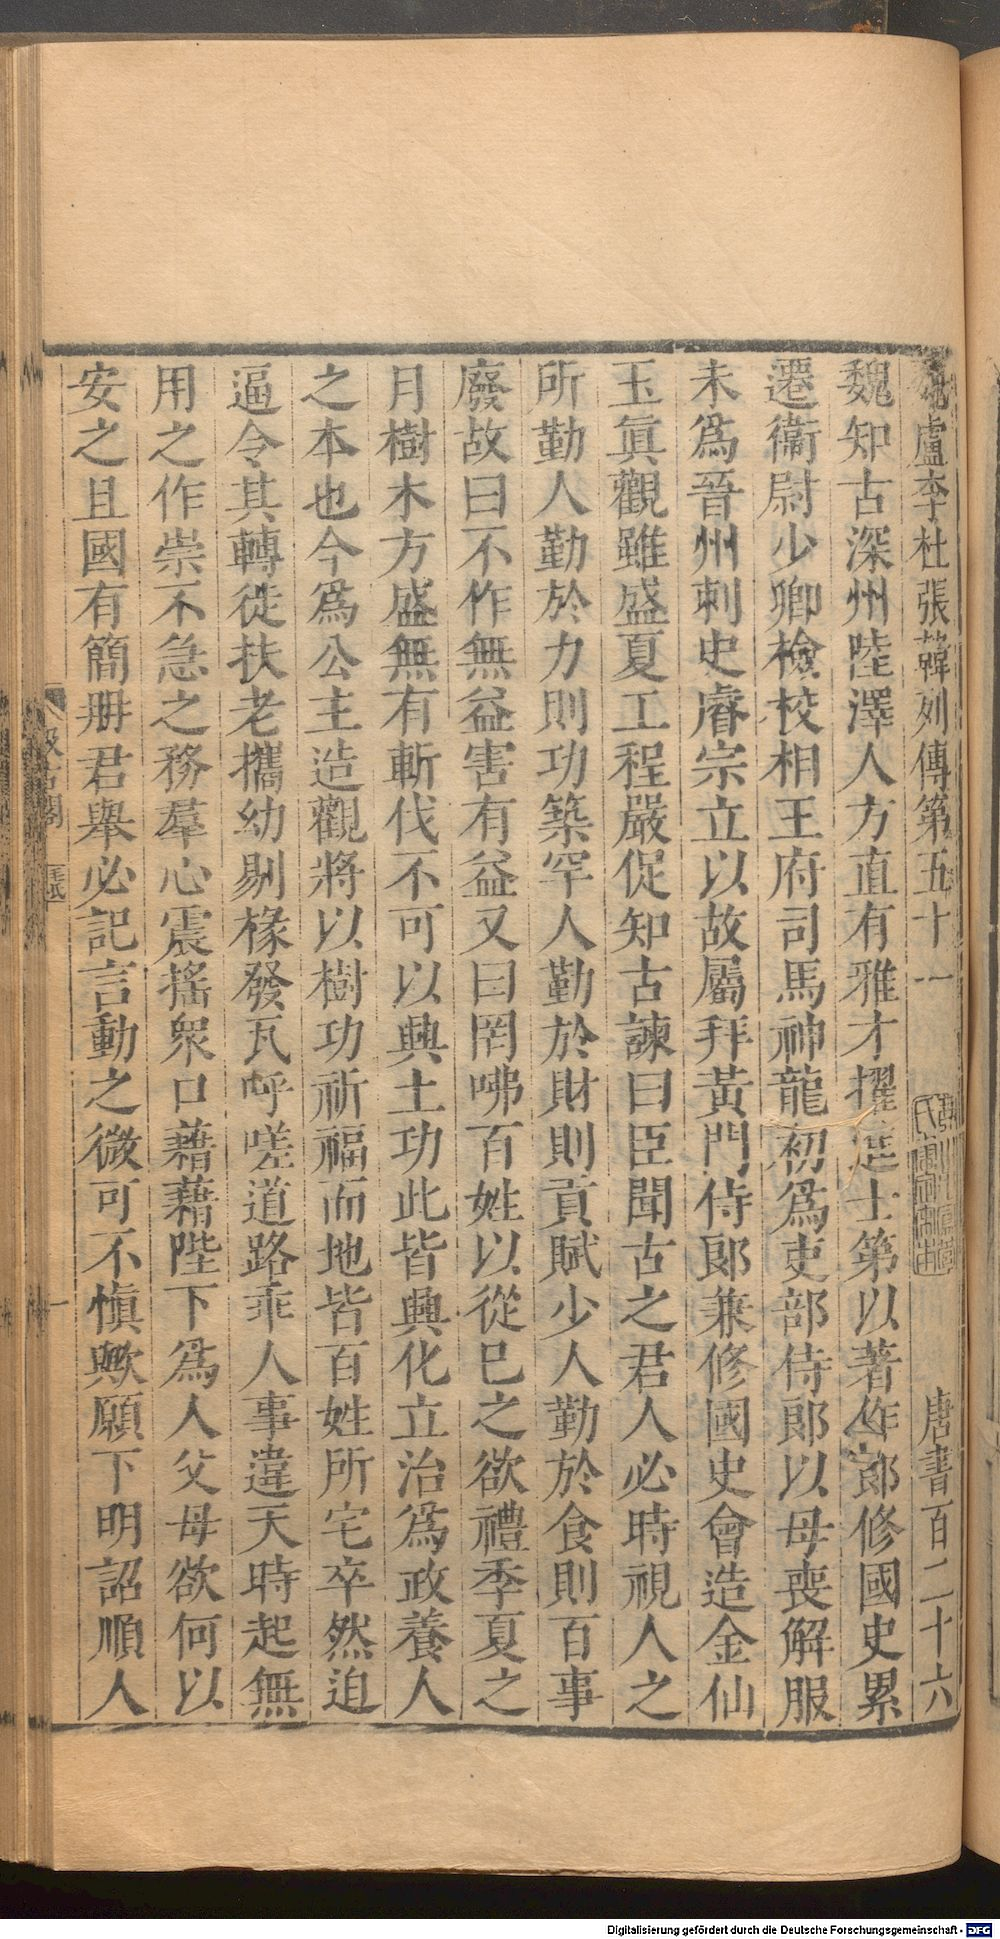 魏盧李杜張韓列傳第五十一 唐書百二十六
魏知古深州陸澤人方直有雅才擢進士第以著作郎修國史累
遷衞尉少卿檢校相王府司馬神龍初爲吏部侍郎以母喪解服
未爲晉州刺史睿宗立以故屬拜黃門侍郎兼修國史會造金仙
玉眞觀雖盛夏工程嚴促知古諫曰臣聞古之君人必時視人之
所勤人勤於力則功築罕人勤於財則貢賦少人勤於食則百事
廢故曰不作無益害有益又曰罔咈百姓以從巳之欲禮季夏之
月樹木方盛無有斬伐不可以興土功此皆興化立治爲政養人
之本也今爲公主造觀將以樹功祈福而地皆百姓所宅卒然迫
逼令其轉徙扶老攜幼剔椽發瓦呼嗟道路乖人事違天時起無
用之作崇不急之務羣心震搖眾口藉藉陛下爲人父母欲何以
安之且國有簡册君舉必記言動之微可不愼歟願下明詔順人
汲古閣
一
Digitalisierung gefördert durch die Deutsche Forschungsgemeinschaft - DFG